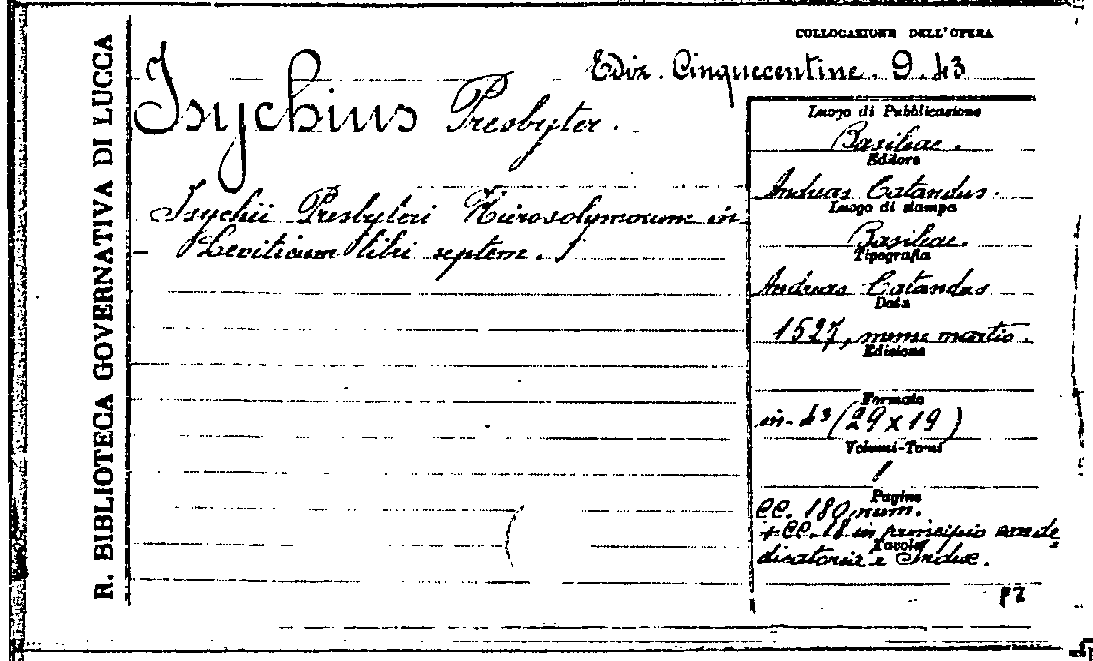 R. BIBLIOTECA GOVERNATIVA DI LUCCA
COLLOCAZIONE DELL'OPERA
Ediz. Cinquecentine. 9.43
Isychius Presbyter.
Isychii Presbyteri Hierosolymorum in
Leviticum libri septem.
Luogo di Pubblicazione
Basileae.
Editore
Andreas Catandus.
Luogo di stampa
Basileae.
Tipografia
Andreas Catandus
Data
1527, mense martio.
Edizione
Formato
in-4º (29 x 19)
Volumi-Tomi
1
Pagine
CC. 180 num.
+ CC. 18 in principio con de
Tavole
dicatoria e Index.